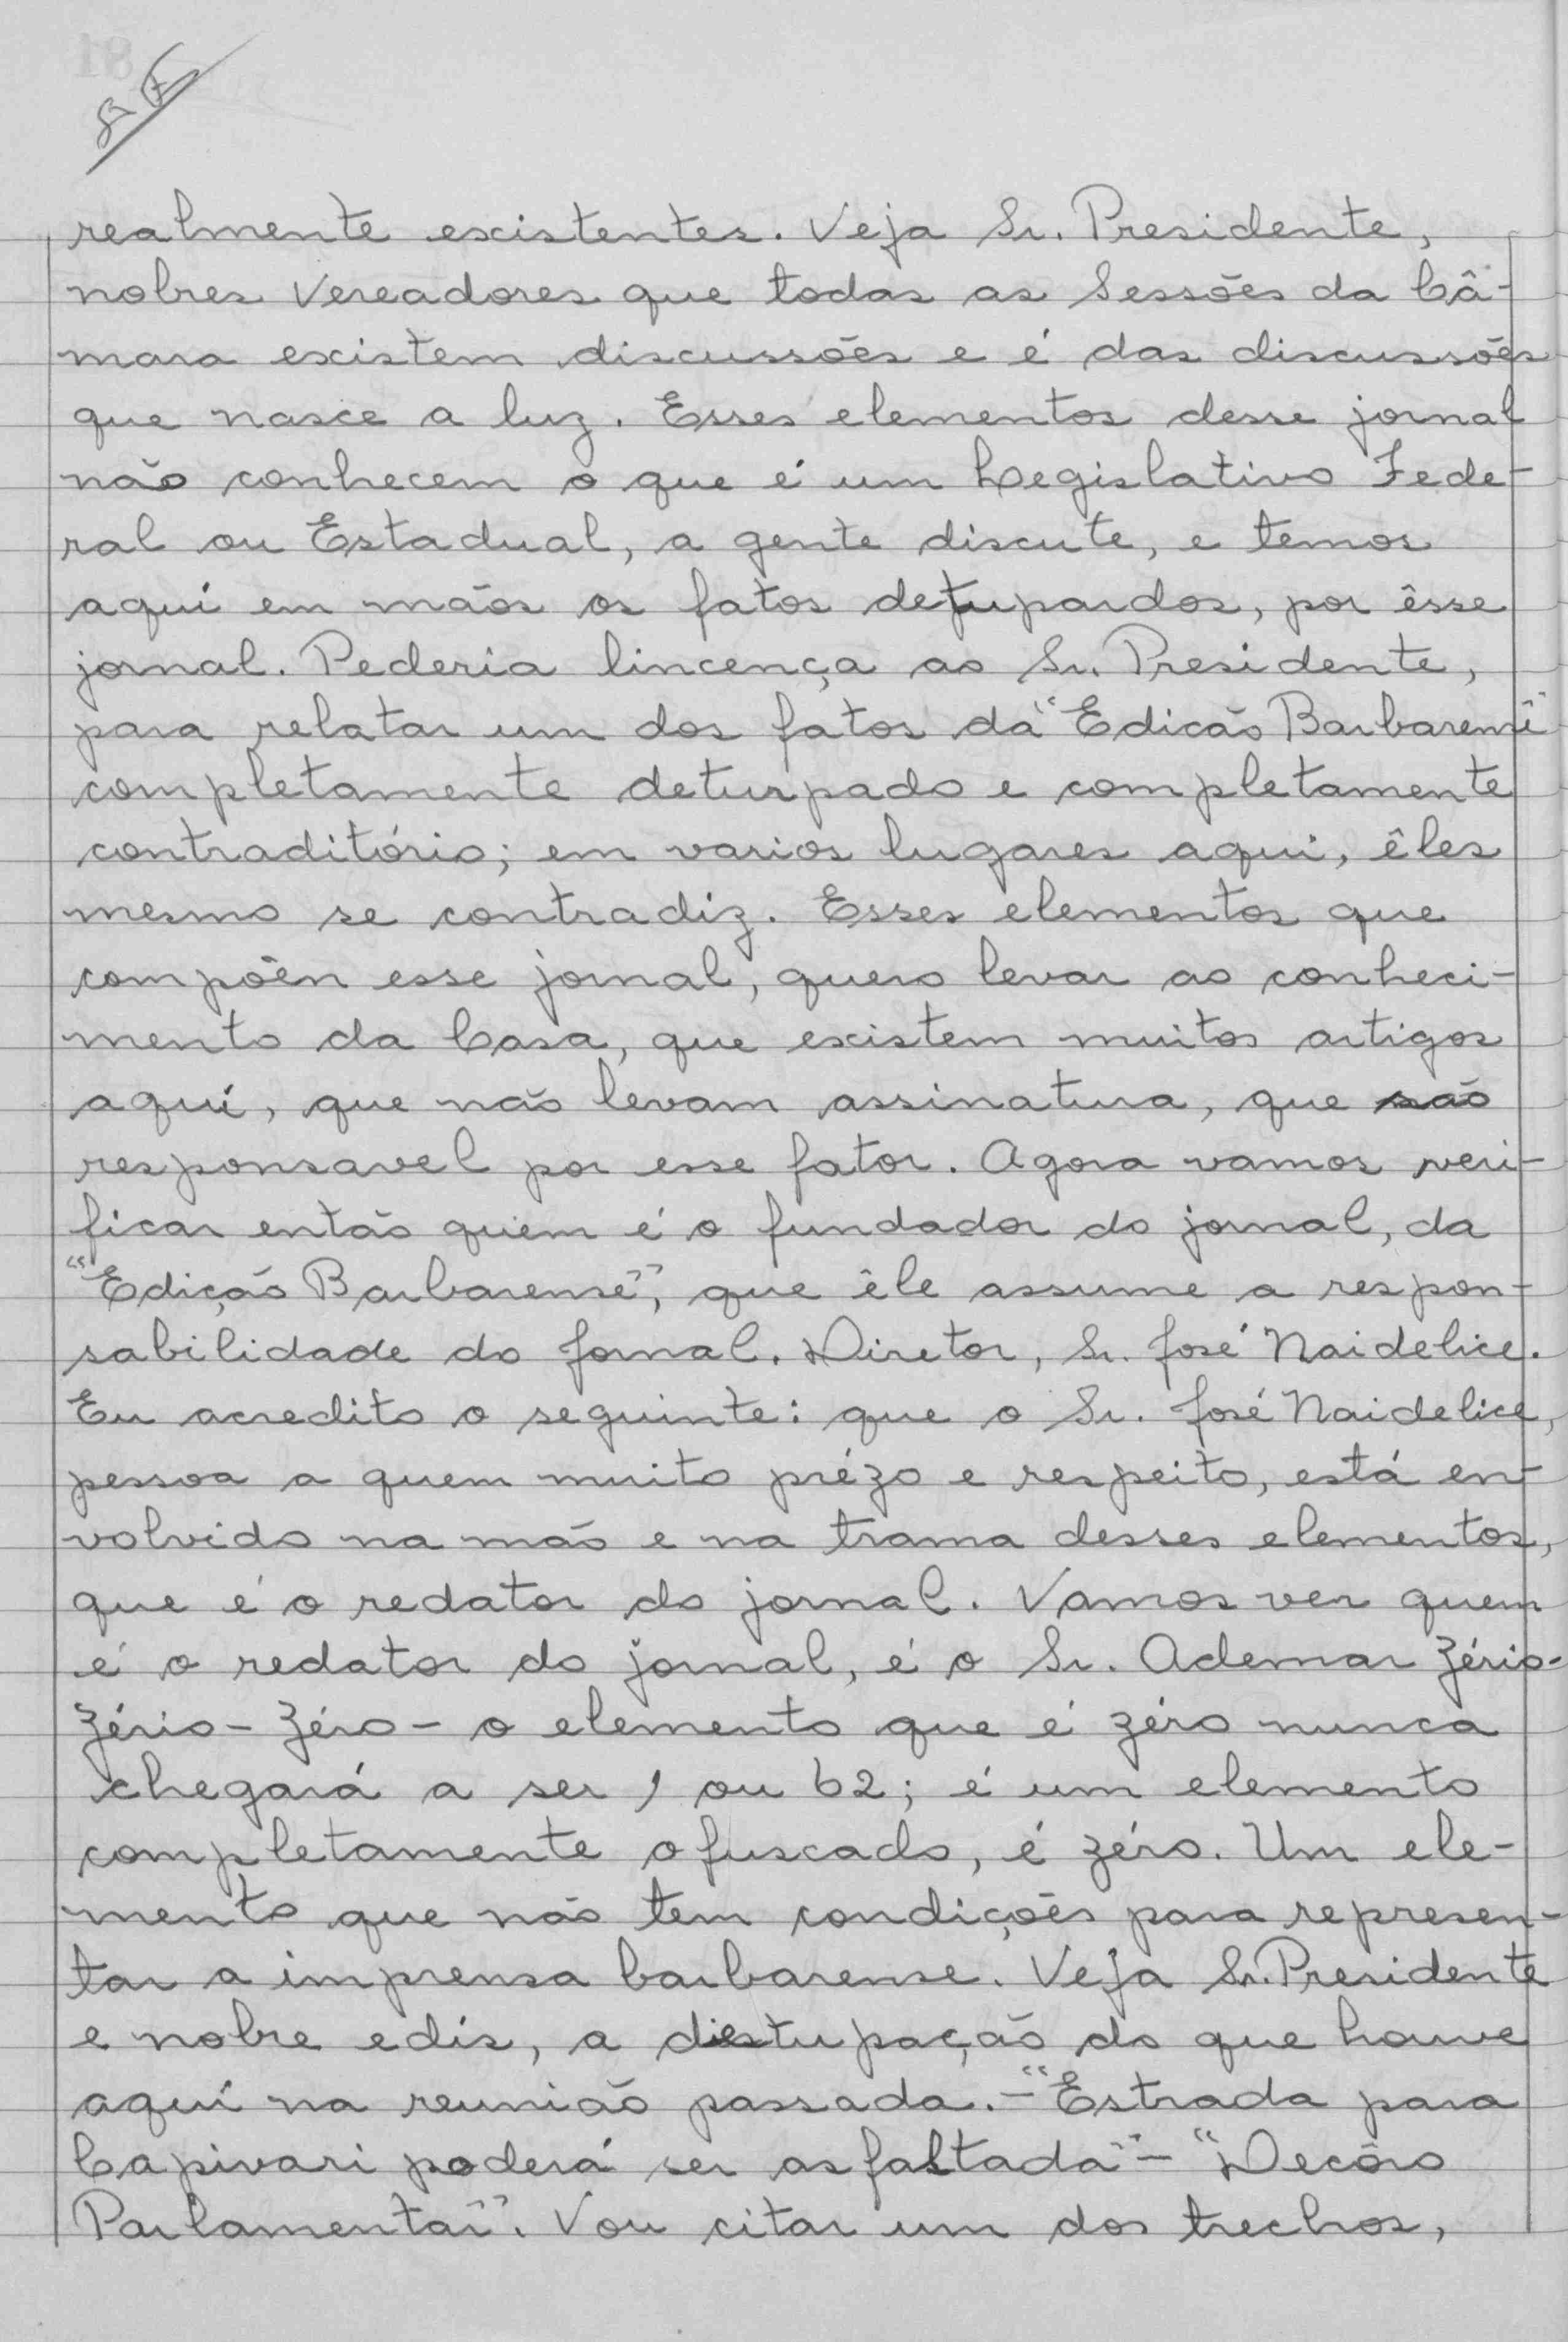 18
realmente existentes. Veja Sr. Presidente,
nobres Vereadores que todas as Sessões da Câ-
mara existem discussões e é das discussões
que nasce a luz. Esses elementos desse jornal
não conhecem o que é um Legislativo Fede-
ral ou Estadual, a gente discute, e temos
aqui em mãos os fatos detupardos, por êsse
jornal. Pederia lincença ao Sr. Presidente,
para relatar um dos fatos da "Edicão Barbarense"
completamente deturpado e completamente
contraditório; em varios lugares aqui, êles
mesmo se contradiz. Esses elementos que
compõen esse jornal, quero levar ao conheci-
mento da Casa, que existem muitos artigos
aquí, que não levam assinatura, que são
responsavel por esse fator. Agora vamos veri-
ficar então quem é o fundador do jornal, da
"Edição Barbarense", que êle assume a respon-
sabilidade do Jornal. Diretor, Sr. José Naidelice.
Eu acredito o seguinte: que o Sr. José Naidelice,
pessoa a quem muito prézo e respeito, está en-
volvido na mão e na trama desses elementos,
que é o redator do jornal. Vamos ver quem
é o redator do jornal, é o Sr. Ademar Zério-
Zério - Zéro - o elemento que é zéro nunca
chegará a ser 1 ou 62; é um elemento
completamente ofuscado, é zéro. Um ele-
mento que não tem condições para represen-
tar a imprensa barbarense. Veja Sr. Presidente
e nobre edis, a destupação do que houve
aquí na reunião passada. - "Estrada para
Capivari poderá ser asfaltada" - "Decôro
Parlamentar". Vou citar um dos trechos,